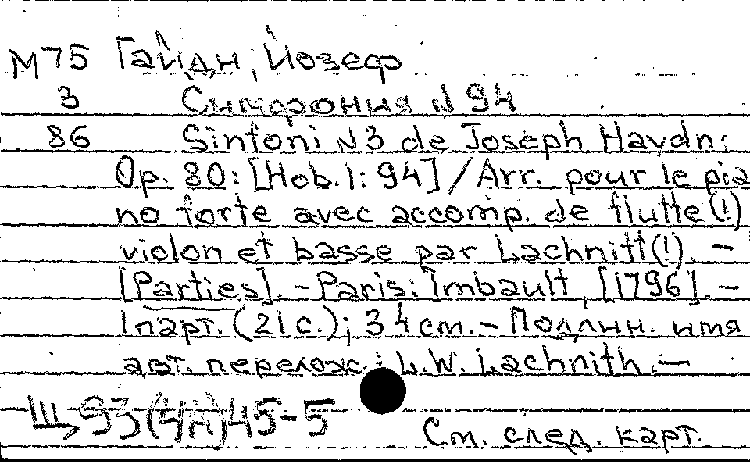 М75 Гайдн, Йозеф
3 Симфония N 94
86 Sinfoni N3 de Joseph Haydn:
Op. 80: [Hob. I: 94] / Arr. pour le pia
no forte avec accomp. de flutte (!)
violon et basse par Lachnitt (!). –
[Parties]. – Paris: Imbault, [1796]. –
1 парт. (21 с.); 34 см. – Подлин. имя
авт. перелож.: L.W. Lachnith. –
Ш 93(4П)45-5
См. след. карт.